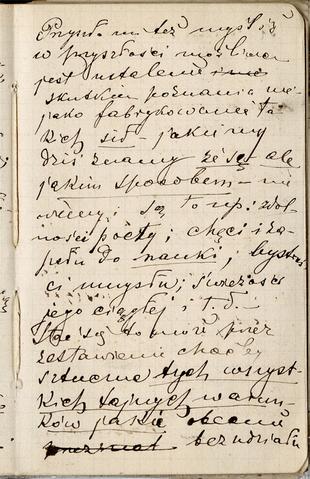 Przyszła mi też myśl, iż
w przyszłości możliwem
jest ustalenie
skutkiem poznania nie-
jako fabrykowanie ta-
kich sił – jakie my
dziś znamy że są ale
jakim sposobem – nie
wiemy, są to np: zdol-
ności poety; chęci i za-
pału do nauki, bystroś-
ci umysłu, świeżości
jego ciągłej i t.d.
Stać się to może przez
zestawienie choćby
sztuczne tych wszyst-
kich tajnych warun-
ków jakie obecnie
bez udziału